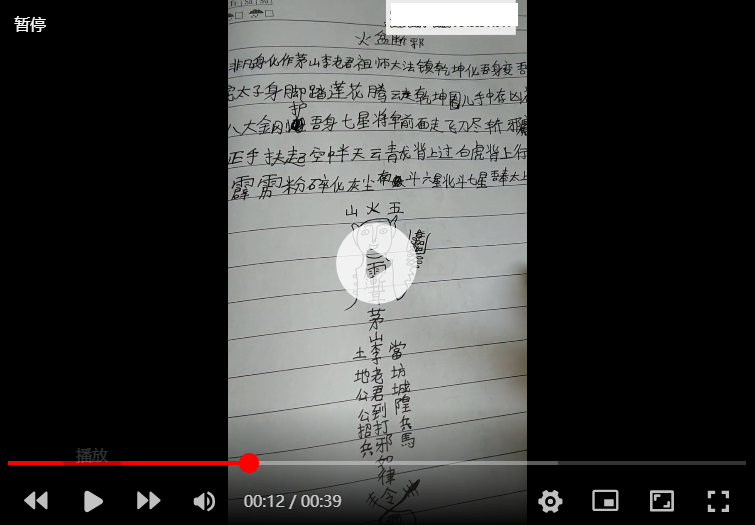 暂停
火盆断邪
非凡身化作茅山李老君祖师大法镇乾坤化吾身变吾
太子身脚踏莲花腾云走乾坤圈儿手中在
护
八大金刚吾身七星将军前面走飞刀尽斩邪
正手扶起空中半天云青龙背上过白虎背上行
霹雳粉碎化灰尘南斗六星北斗七星吾奉太上
山火五
茅山李老君到打邪如律令
當坊城隍兵馬
土地公公招兵
播放
00:12 / 00:39